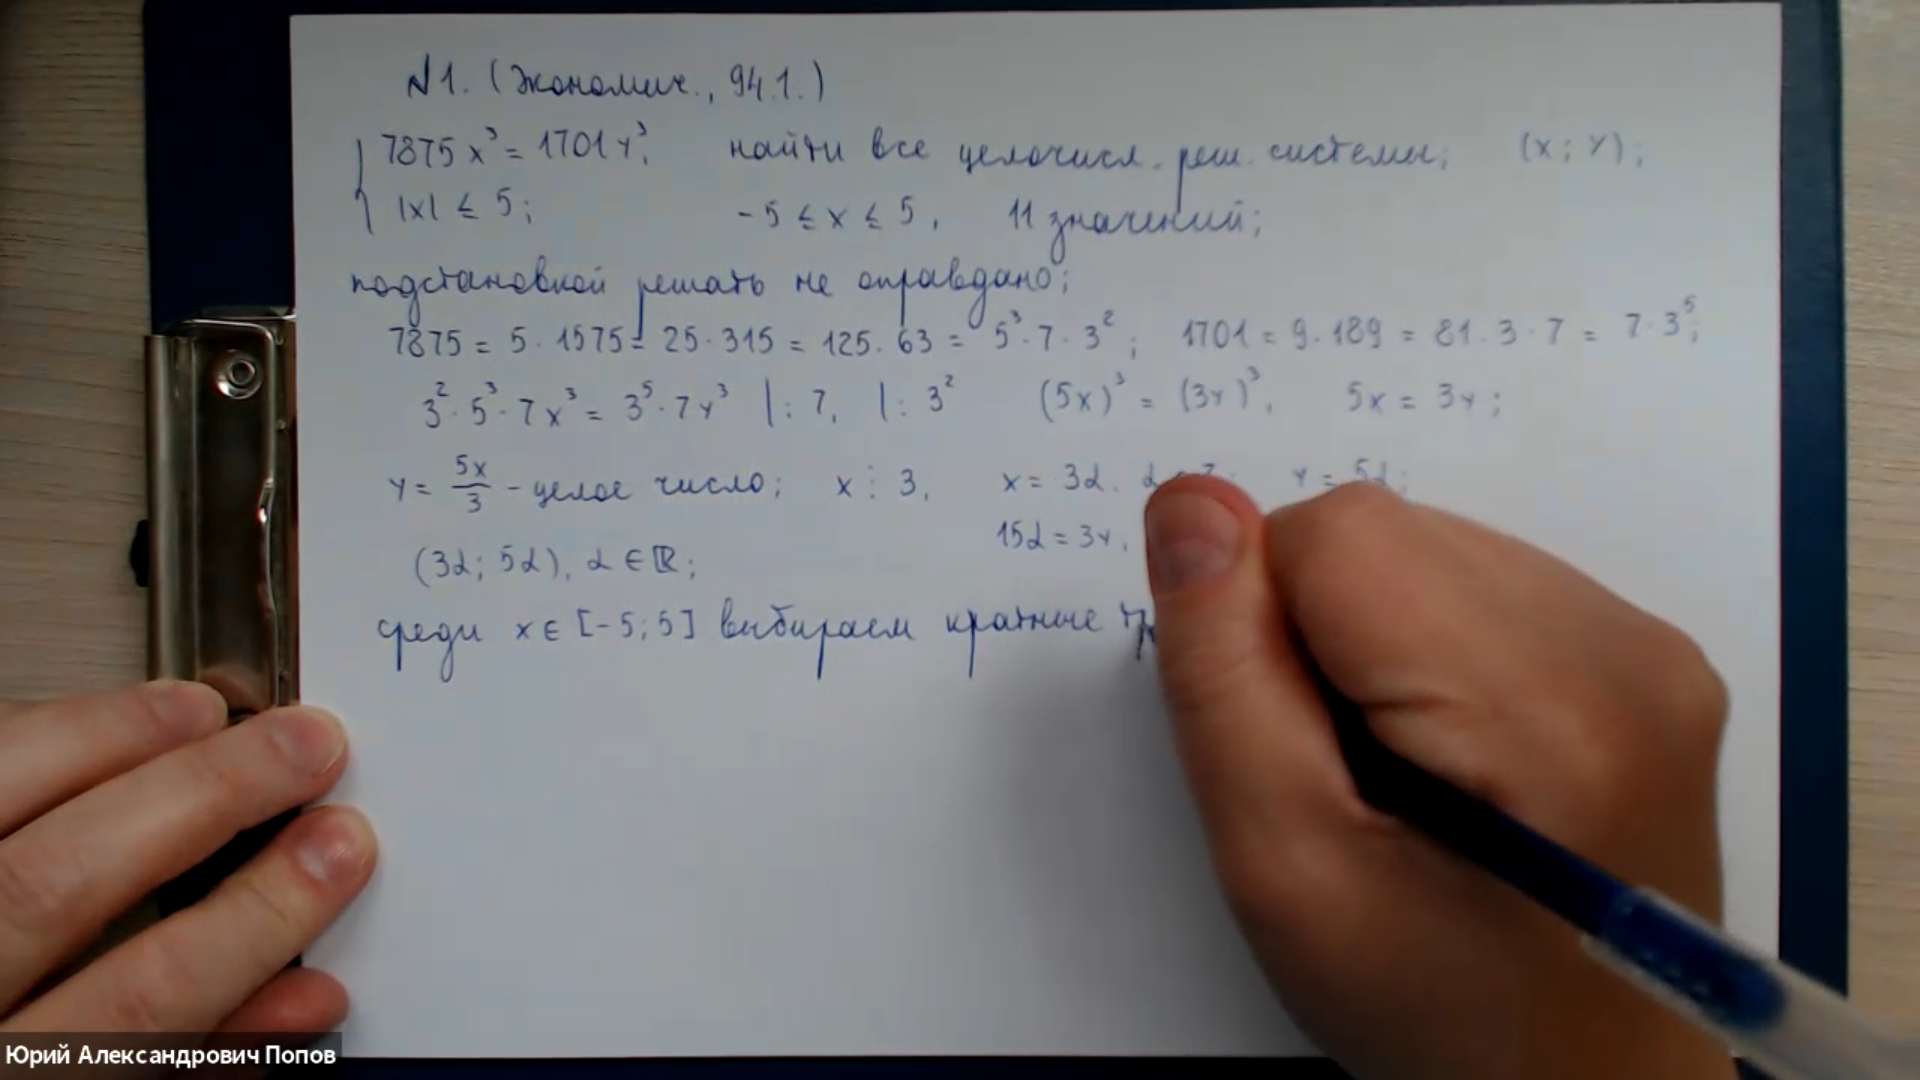 №1. (Экономич., 94.1.)
{ 7875x³ = 1701y³, найти все целочисл. реш. системы; (x; y);
|x| ≤ 5; -5 ≤ x ≤ 5, 11 значений;
подстановкой решать не оправдано;
7875 = 5·1575 = 25·315 = 125·63 = 5³·7·3²; 1701 = 9·189 = 81·3·7 = 7·3⁵;
3²·5³·7x³ = 3⁵·7y³ |:7, |:3² (5x)³ = (3y)³, 5x = 3y;
y = 5x/3 - целое число; x ⋮ 3, x = 3α. y = 5α;
15α = 3y,
(3α; 5α), α ∈ ℝ;
среди x ∈ [-5; 5] выбираем кратные
Юрий Александрович Попов